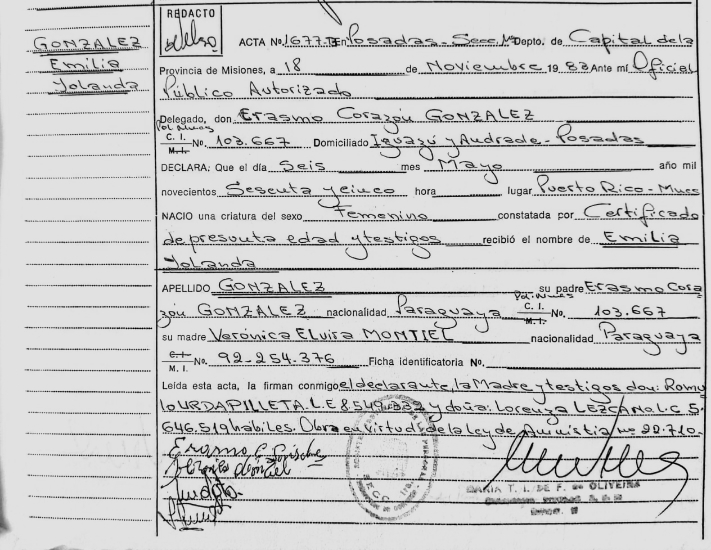 GONZALEZ
Emilia
Yolanda
REDACTO
ACTA No. 1677.TºI En Posadas - Secc. 1ª Depto. de Capital de la
Provincia de Misiones, a 18 de Noviembre 19 83 Ante mí Oficial
Público Autorizado
Delegado, don Erasmo Corazón GONZALEZ
Pol. Mnes
C. I.
M. I. No. 103.667 Domiciliado Iguazú y Andrade - Posadas
DECLARA: Que el día Seis mes Mayo año mil
novecientos Sesenta y cinco hora lugar Puerto Rico - Mnes
NACIO una criatura del sexo Femenino constatada por Certificado
de presunta edad y testigos recibió el nombre de Emilia
Yolanda
APELLIDO GONZALEZ su padre Erasmo Cora
zón GONZALEZ nacionalidad Paraguaya Pol. Mnes C. I. M. I. No. 103.667
su madre Verónica Elvira MONTIEL nacionalidad Paraguaya
C. I.
M. I. No. 92.254.376 Ficha identificatoria No.
Leída esta acta, la firman conmigo el declarante, la Madre y testigos don: Romu
lo URDAPILLETA. L.E 8.549.332 y doña: Lorenza LEZCANO. L.C 5.
646.519 habiles. Obra en virtud de la ley de Amnistia nº 22.710.
MARIA T. I. DE F. de OLIVEIRA